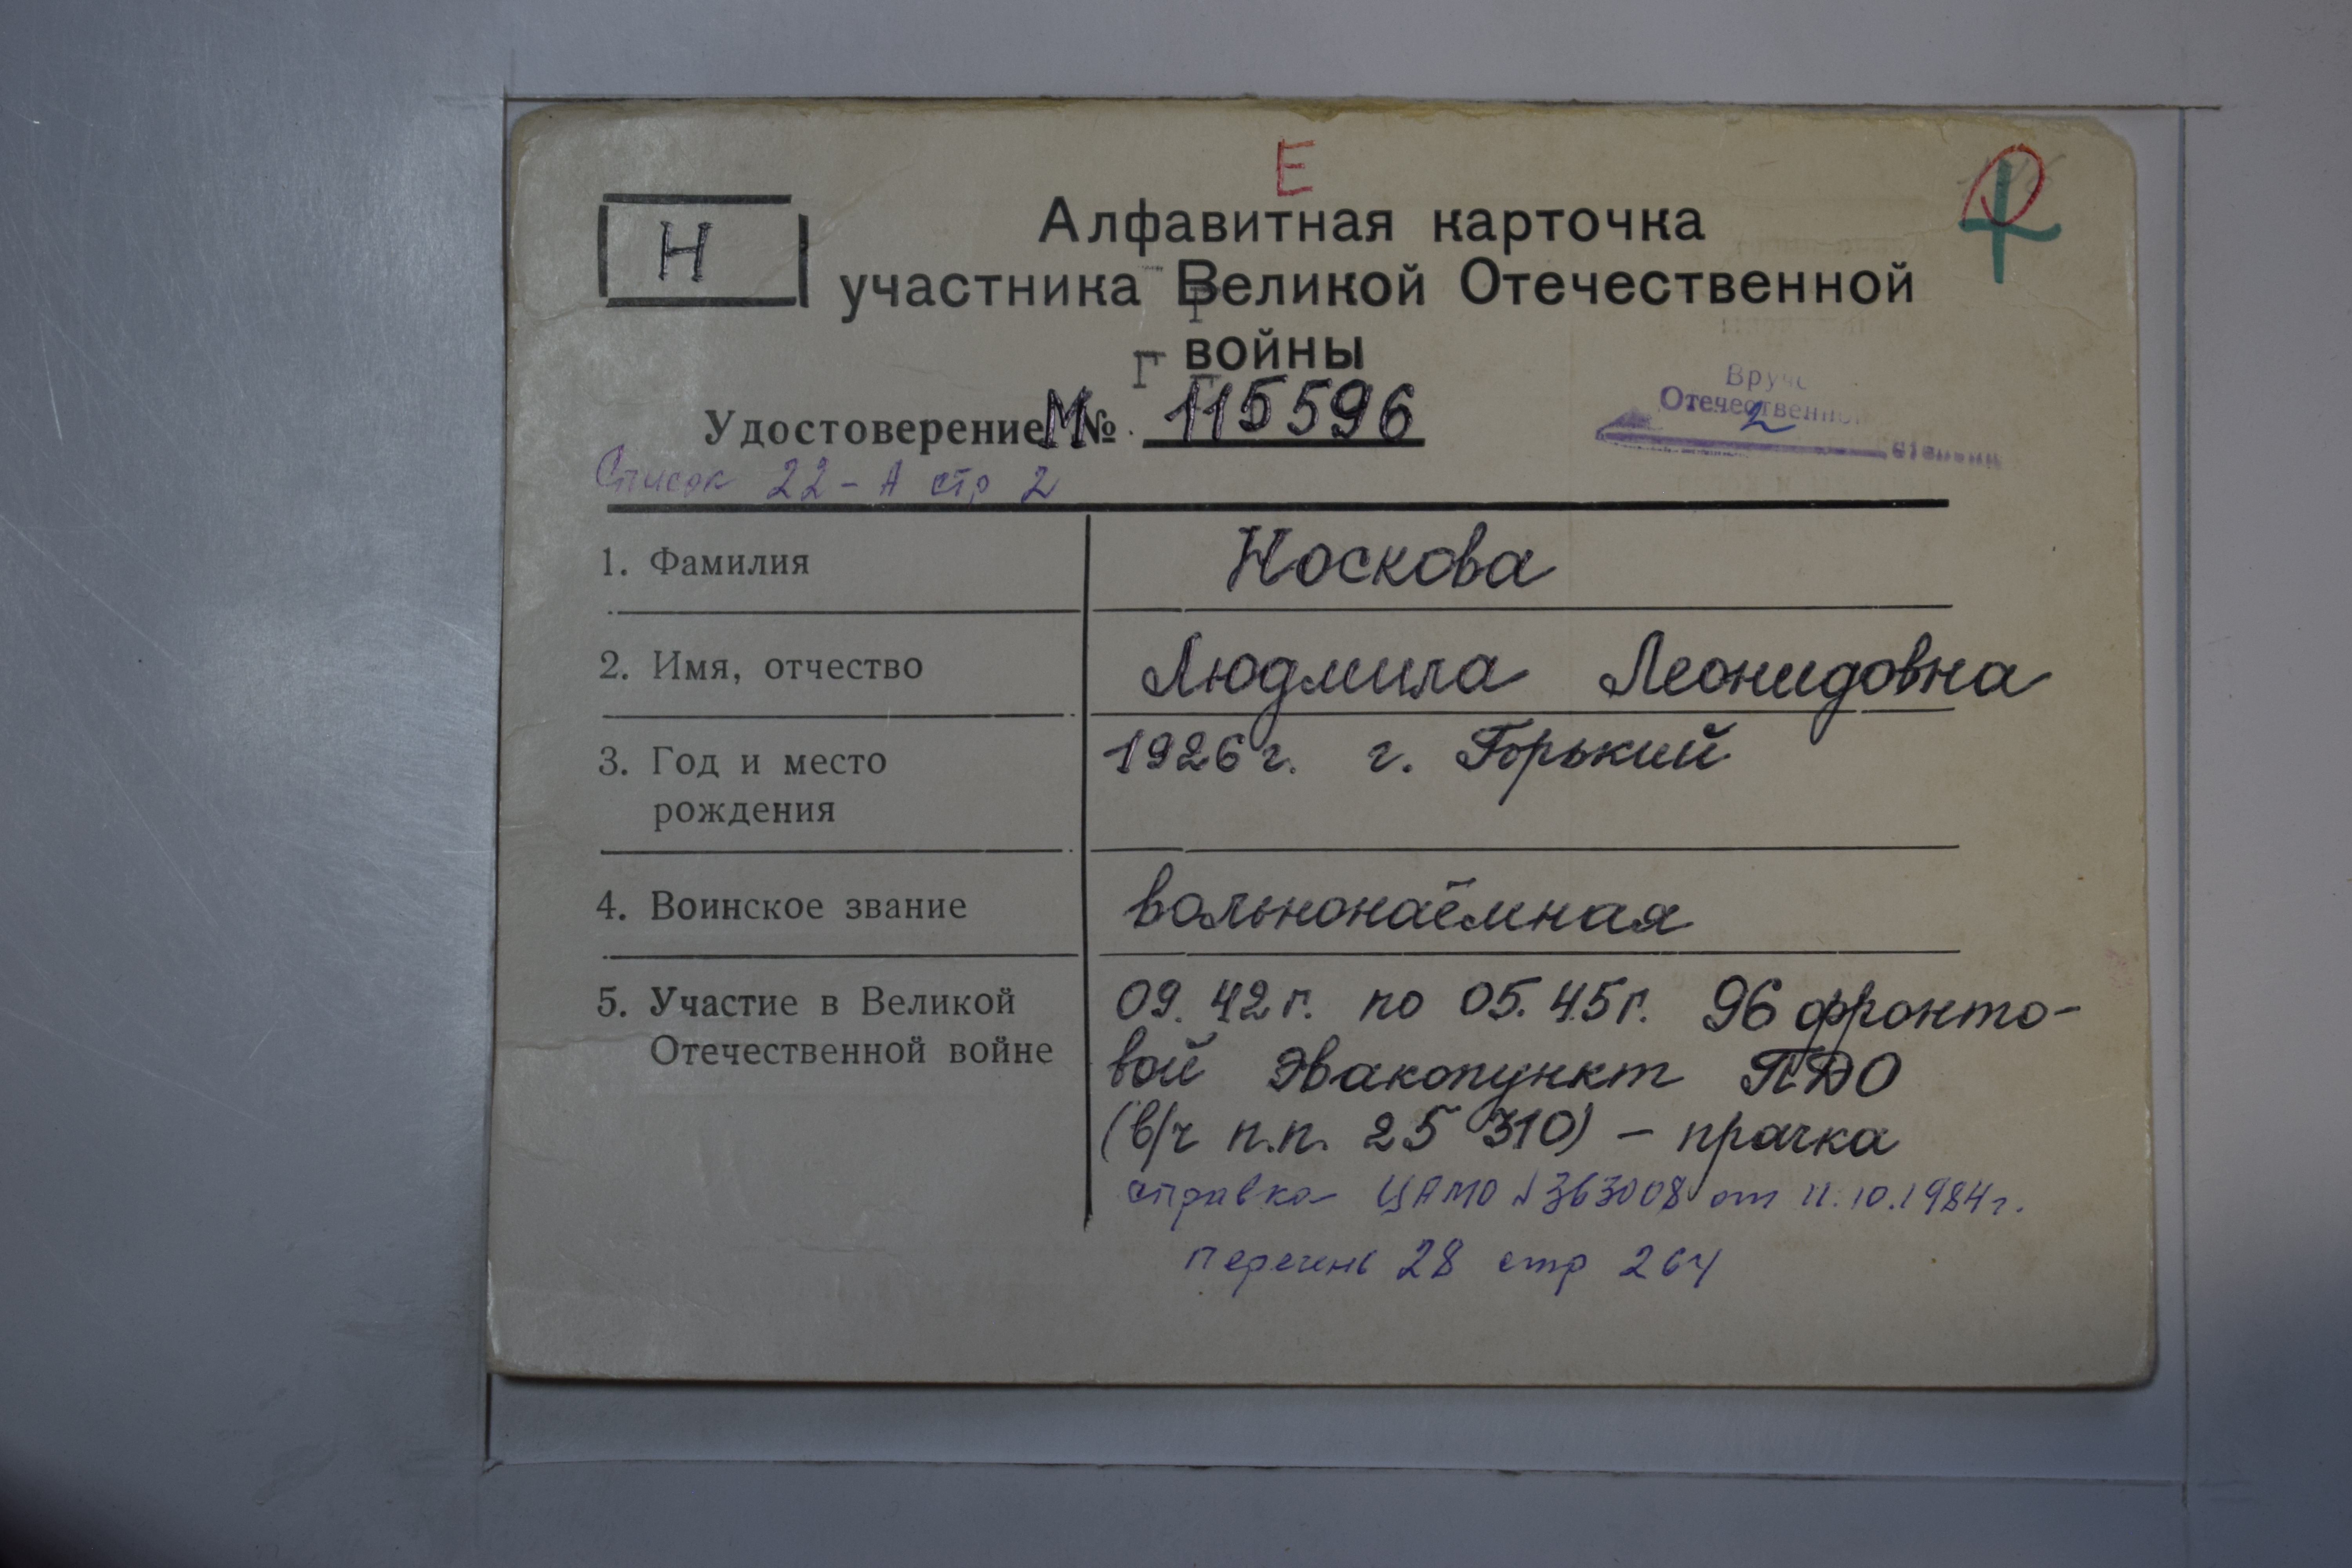 Е
Н
Алфавитная карточка
участника Великой Отечественной
войны
Г
Удостоверение М № 115596
Отечественной
2
степени
Список 22-А стр 2
1. Фамилия Носкова
2. Имя, отчество Людмила Леонидовна
3. Год и место 1926г. г. Горький
рождения
4. Воинское звание вольнонаёмная
5. Участие в Великой 09.42г. по 05.45г. 96 фронто-
Отечественной войне вой Эвакопункт ПДО
(в/ч п.п. 25310) – прачка
справка ЦАМО №363008 от 11.10.1984г.
перечень 28 стр 264